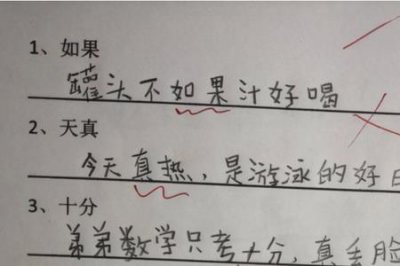 1、如果
罐头不如果汁好喝
2、天真
今天真热，是游泳的好日
3、十分
弟弟数学只考十分，真丢脸